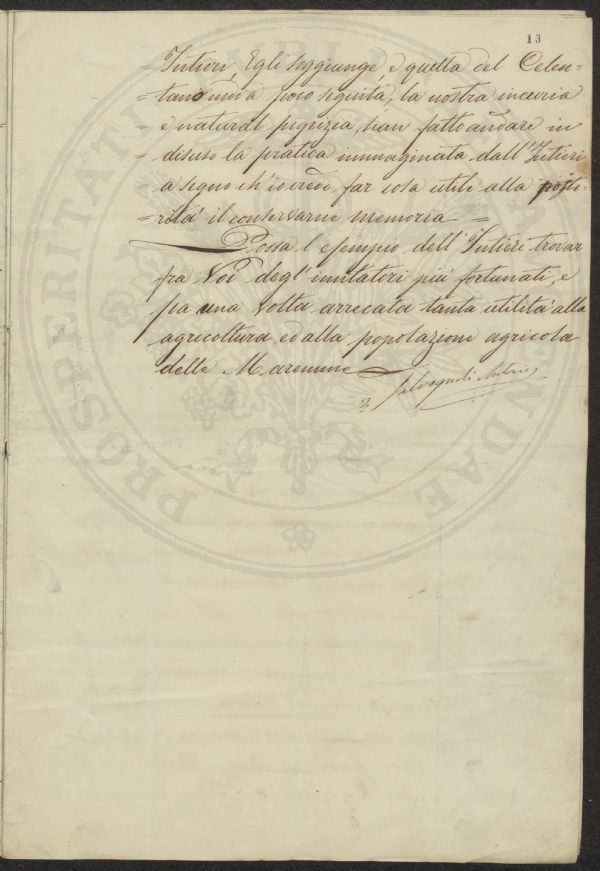 13
= Intieri, Egli soggiunge, è quella del Celen=
= tano indi a poco seguita, la nostra incuria
= e natural pigrizia, han fatto andare in
= disuso la pratica immaginata dall'Intieri
= a segno ch'io credo far cosa utile alla poste=
= rità il conservarne memoria =
Possa l'esempio dell'Intieri trovar
fra Voi degl'imitatori più fortunati, e
sia una volta arrecata tanta utilità alla
agricoltura, ed alla popolazione agricola
delle Maremme
Salvagnoli
PROSPERITATI AUGENDAE